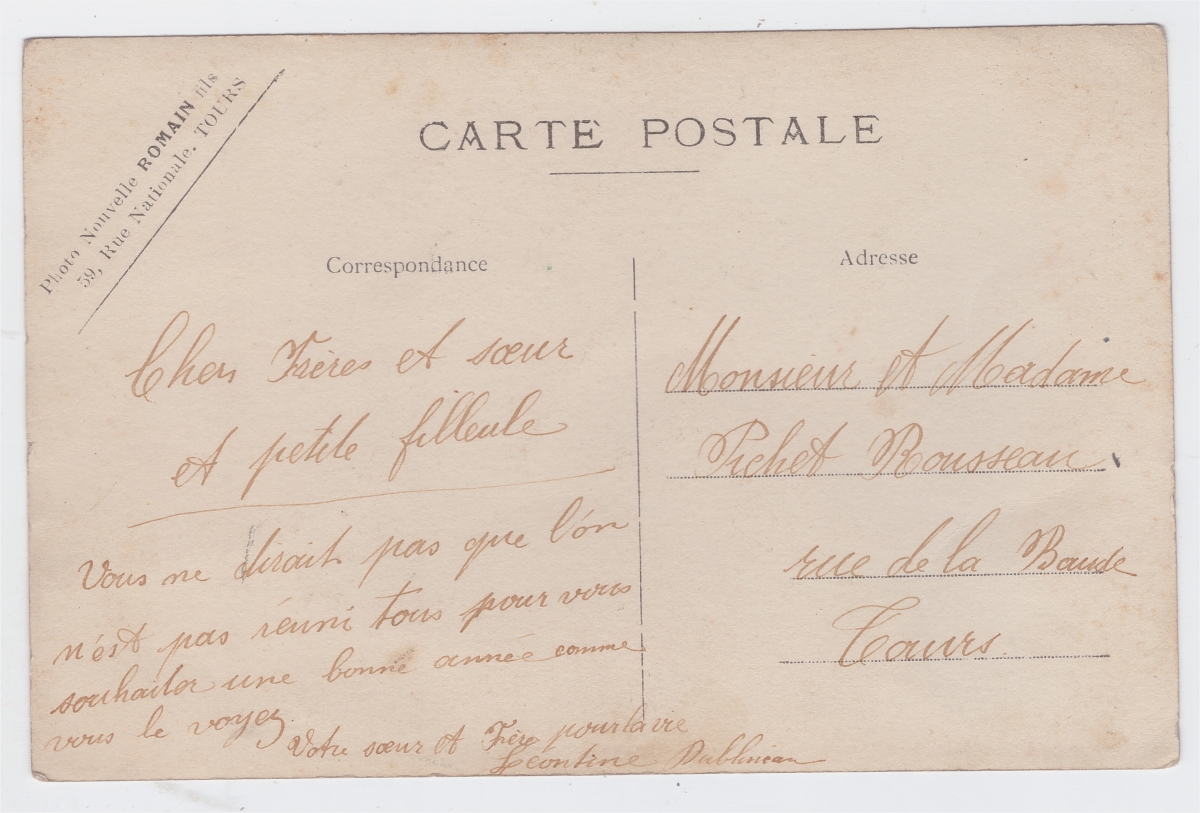 Photo Nouvelle ROMAIN fils
59, Rue Nationale. TOURS
CARTE POSTALE
Correspondance
Chers Frères et sœur
et petite filleule
Vous ne dirait pas que l'on
n'est pas réuni tous pour vous
souhaiter une bonne année comme
vous le voyez
Votre sœur et Frère pour la vie
Leontine Dublineau
Adresse
Monsieur et Madame
Pichet Rousseau
rue de la
Tours